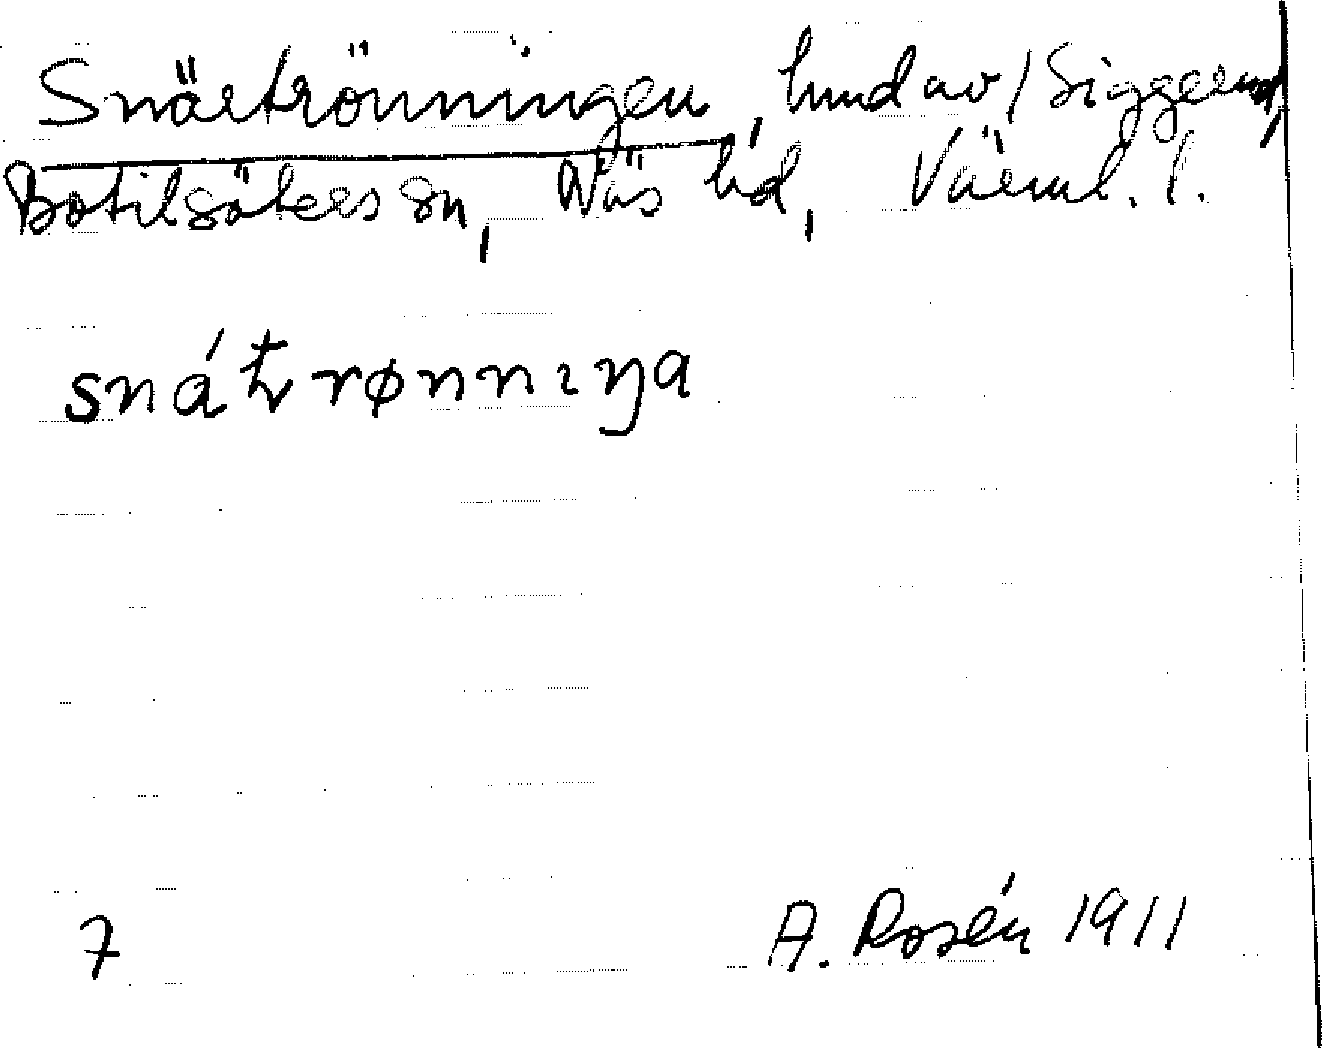 Snärtrönningen, hmd av 1 Siggerud,
Botilsäters sn, Näs hd, Värml. l.
snátrønnıŋa
7
A. Rosén 1911